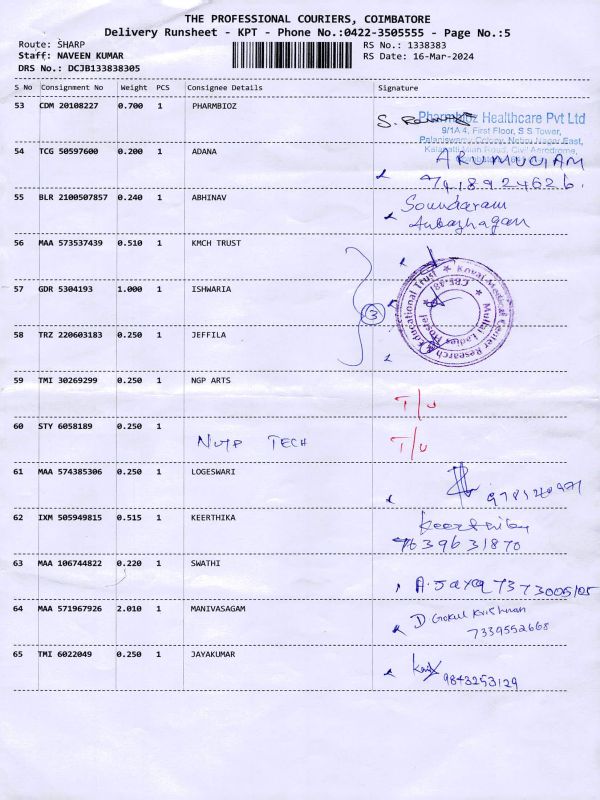 THE PROFESSIONAL COURIERS, COIMBATORE
Delivery Runsheet - KPT - Phone No.:0422-3505555 - Page No.:5
Route: SHARP RS No.: 1338383
Staff: NAVEEN KUMAR RS Date: 16-Mar-2024
DRS No.: DCJB133838305
S No Consignment No Weight PCS Consignee Details Signature
53 CDM 20108227 0.700 1 PHARMBIOZ
Pharmbioz Healthcare Pvt Ltd
9/1A 4, First Floor, S S Tower,
Palaniswamy Colony, Nehru Nagar East,
Kalapatti Main Road, Civil Aerodrome,
54 TCG 50597600 0.200 1 ADANA ARUMUGAM
55 BLR 2100507857 0.240 1 ABHINAV Soundaram
Anbazhagan
56 MAA 573537439 0.510 1 KMCH TRUST
57 GDR 5304193 1.000 1 ISHWARIA
3
Kovai Medical Center Research Educational Trust
Mullai Ladies Hostel
58 TRZ 220603183 0.250 1 JEFFILA
59 TMI 30269299 0.250 1 NGP ARTS T/U
60 STY 6058189 0.250 1 T/U
TECH
61 MAA 574385306 0.250 1 LOGESWARI
62 IXM 505949815 0.515 1 KEERTHIKA Keerthika
9639631870
63 MAA 106744822 0.220 1 SWATHI A. Jaya 7373005105
64 MAA 571967926 2.010 1 MANIVASAGAM D Gokul Krishnan
7339552668
65 TMI 6022049 0.250 1 JAYAKUMAR
9843253129